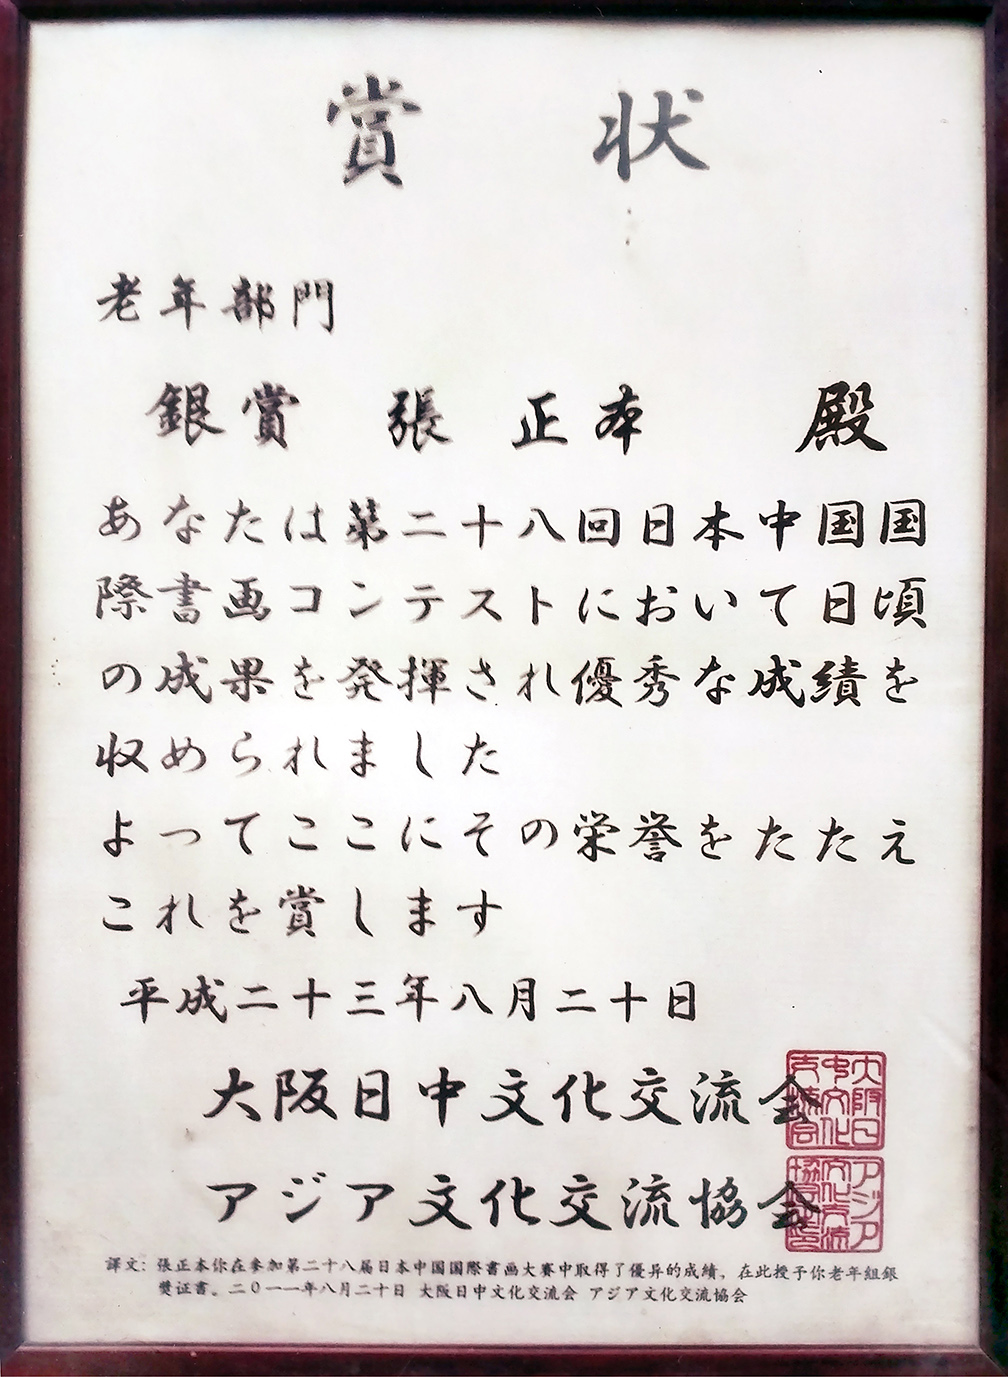 賞状
老年部門
銀賞 張正本 殿
あなたは第二十八回日本中国国
際書画コンテストにおいて日頃
の成果を発揮され優秀な成績を
収められました
よってここにその栄誉をたたえ
これを賞します
平成二十三年八月二十日
大阪日中文化交流会
アジア文化交流協会
譯文：張正本你在参加第二十八届日本中国国際書画大賽中取得了優异的成績，在此授予你老年組銀
獎证書。二〇一一年八月二十日 大阪日中文化交流会 アジア文化交流協会